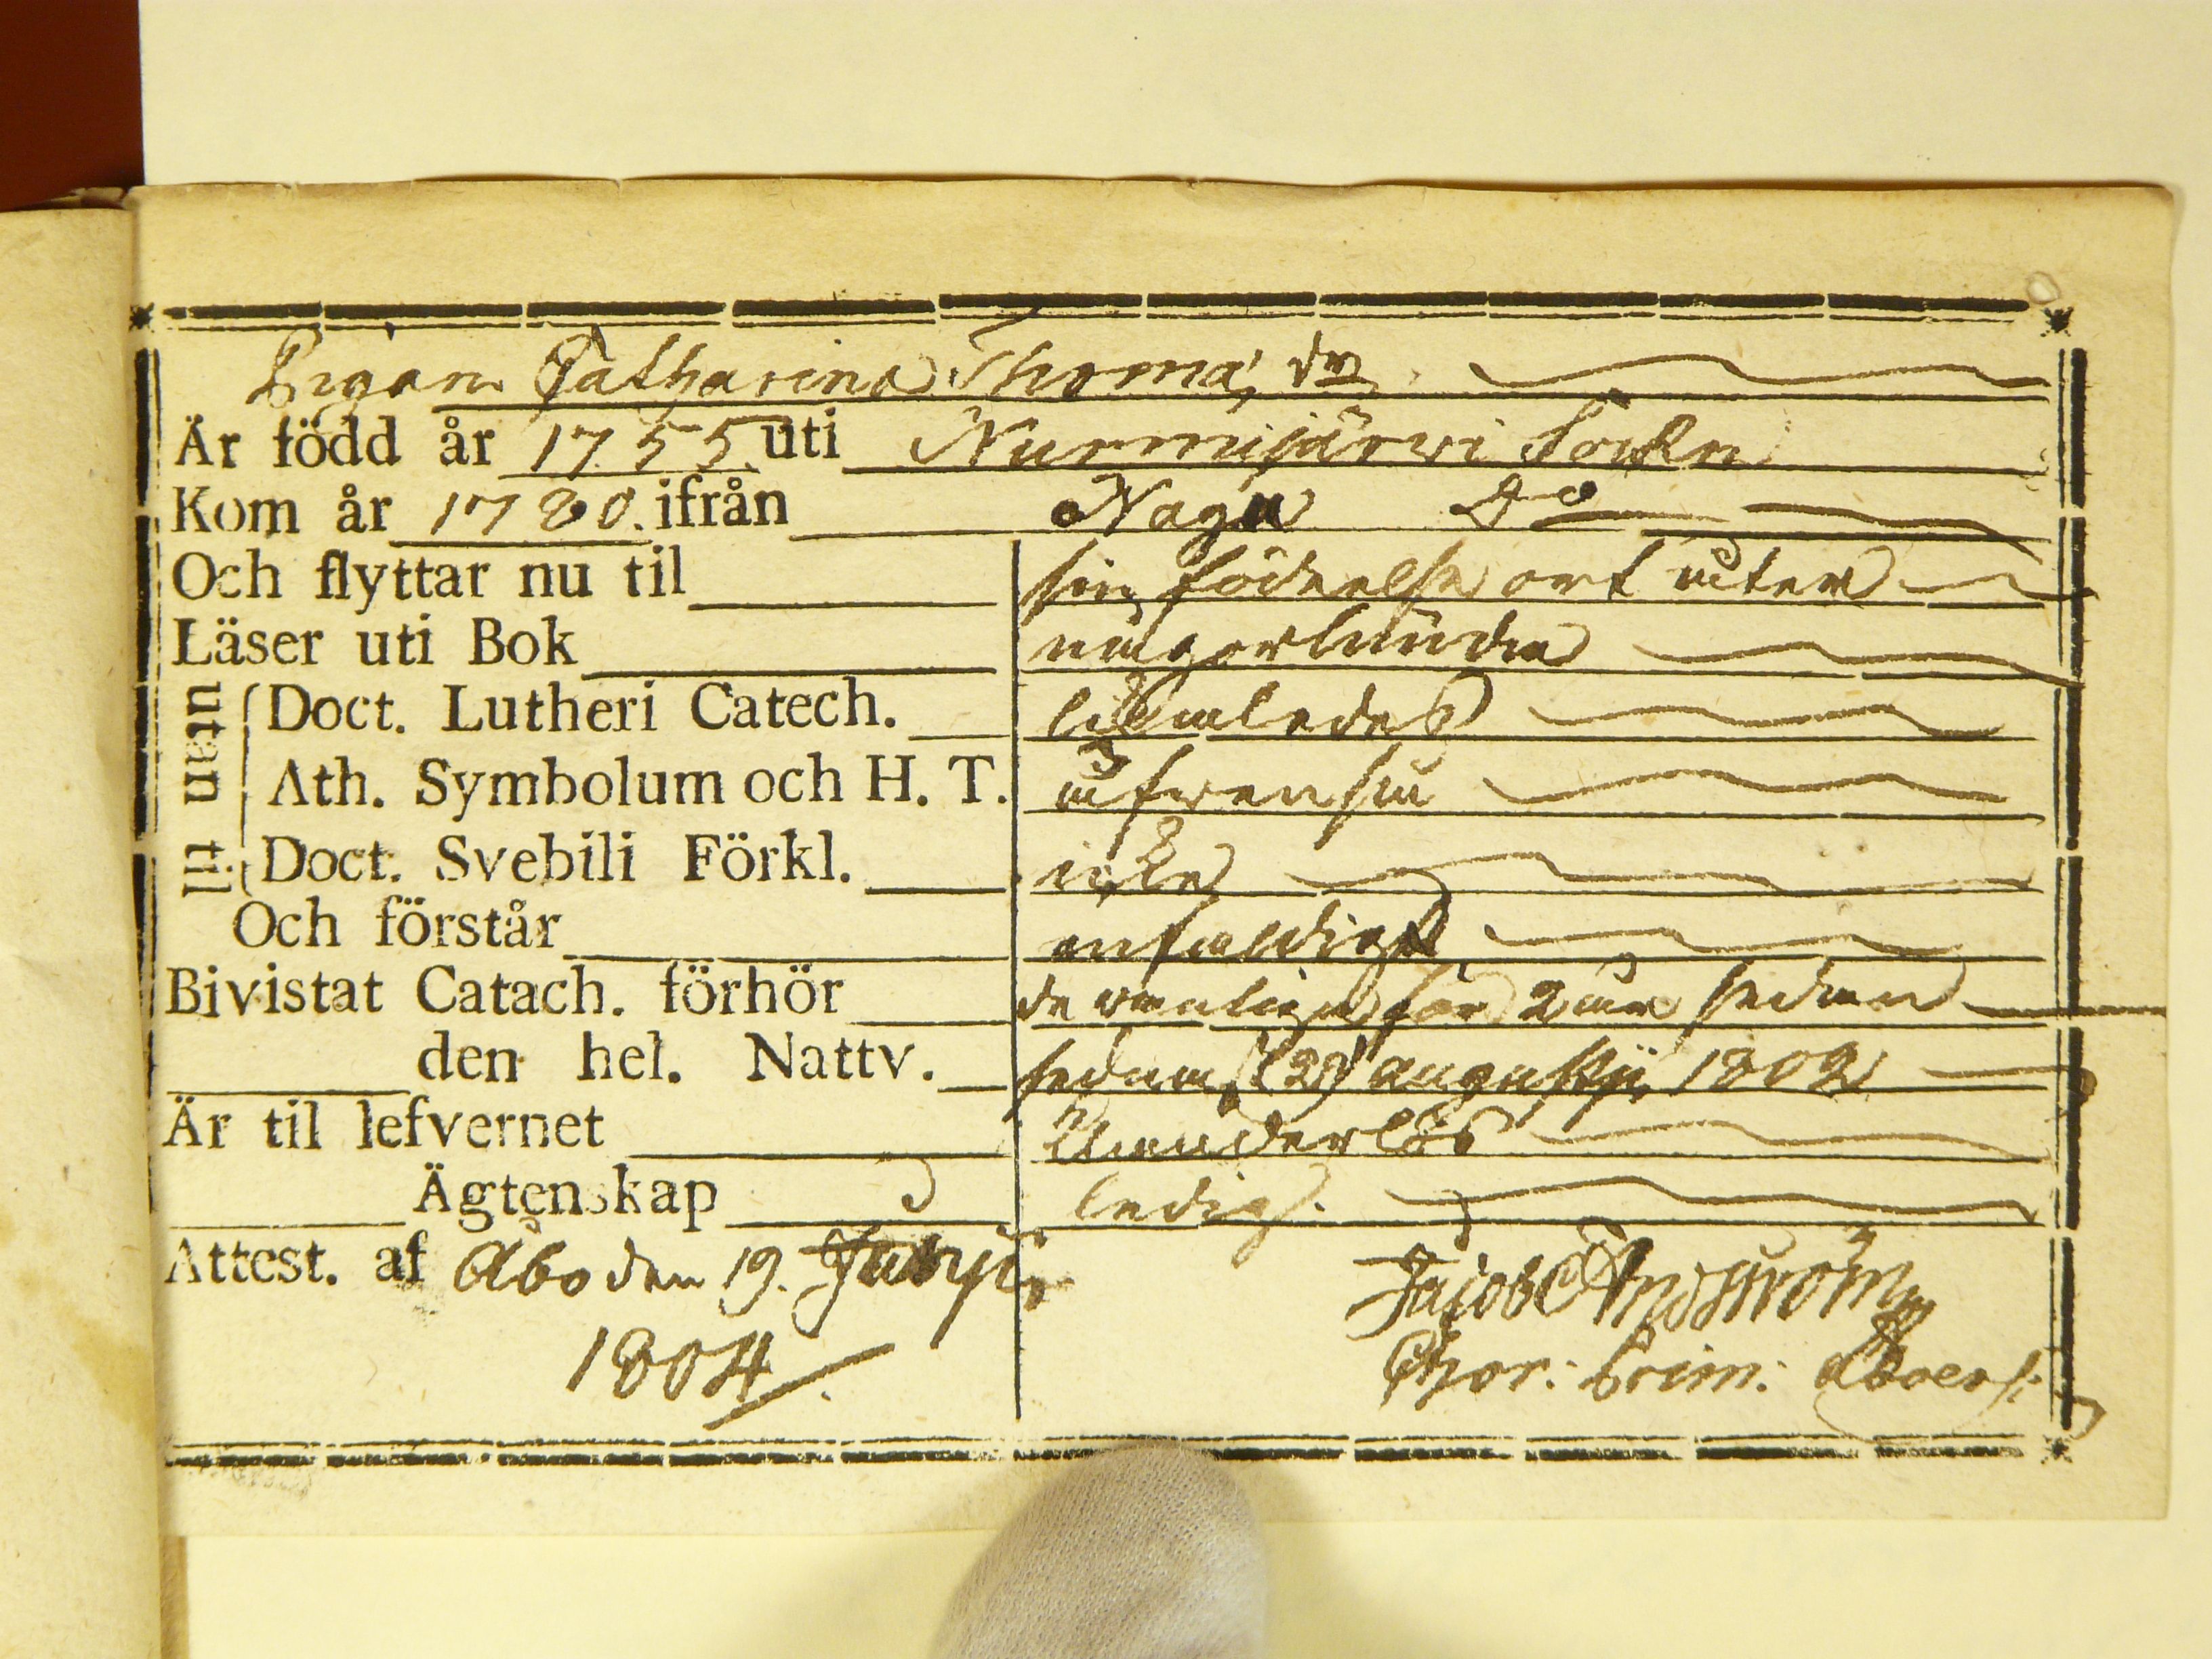 Pigan Catharina Thomæ dr
Är född år 1755 uti Nurmijärvi Sockn
Kom år 1780. ifrån Nagu Do
Och flyttar nu til sin födelse ort åter
Läser uti Bok någorlunda
utan til
Doct. Lutheri Catech. likaledes
Ath. Symbolum och H. T. äfvenså
Doct. Svebili Förkl. icke
Och förstår enfaldigt
Bivistat Catach. förhör vanligen för 2 år sedan
den hel. Nattv. sedan d. 29 augustii 1802
Är til lefvernet klanderlös
Ägtenskap ledig.
Attest. af Åbo den 19. 
1804
Jacob
Chor: Prim: Aboens: